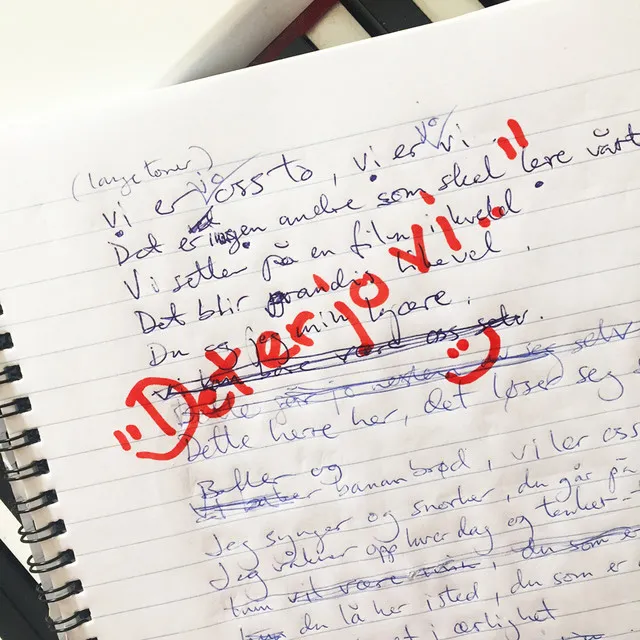 (lange toner)
Vi er jo oss to, vi er jo vi
Det er ingen andre som skal lere vårt
Vi setter på en film i kveld.
Det blir grandis likevel.
Du og jeg min kjære.
"Det er jo vi.."
:)
Dette herre her, det løser seg s
Boller og
banan brød, vi ler oss
Jeg synger og snorker, du går på
Jeg våkner opp hver dag og tenker
du som e
du lå her isted, du som er
i ærlighet